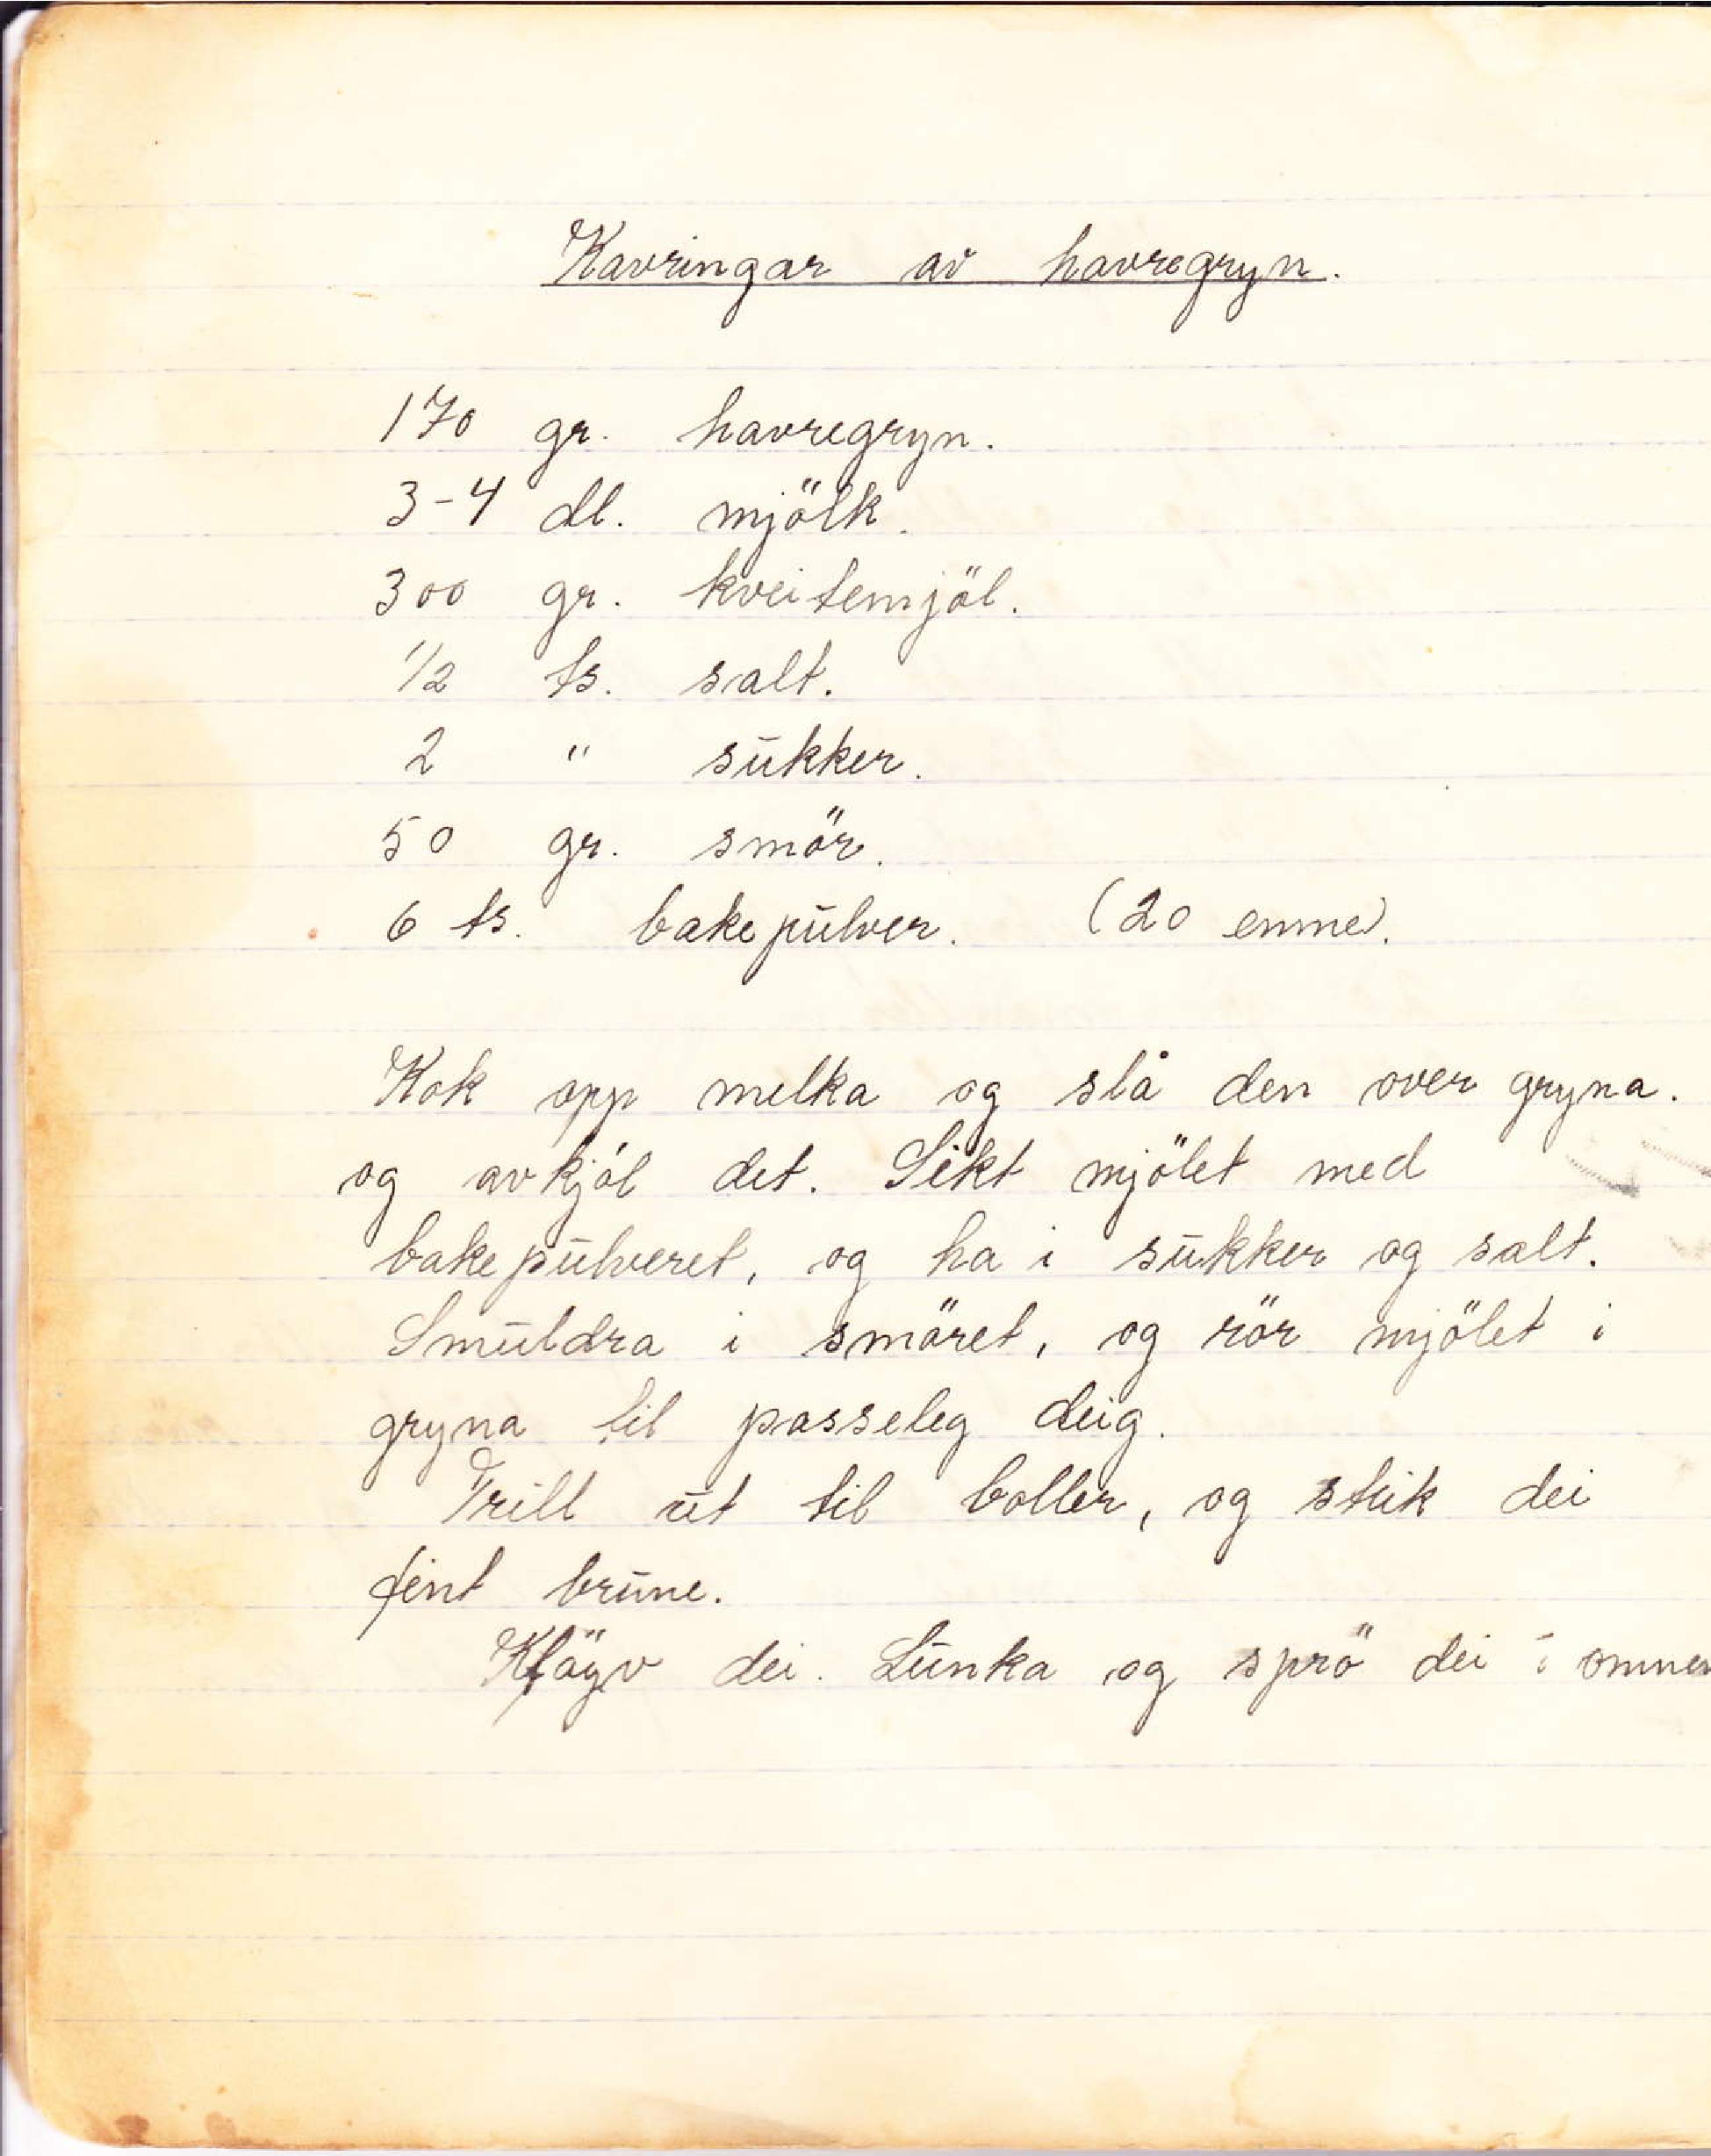 Kavringar av havregryn.
170 gr. havregryn.
3-4 dl. mjölk.
300 gr. kveitemjöl.
1/2 ts. salt.
2 " sukker.
50 gr. smör.
6 ts. bakepulver. (20 emne).
Kok opp melka og slå den over gryna.
og avkjöl det. Sikt mjölet med
bakepulveret, og ha i sukker og salt.
Smuldra i smöret, og rör mjölet i
gryna til passeleg deig.
Trill ut til boller, og steik dei
fint brune.
Klöyv dei. Lunka og sprö dei i omnen